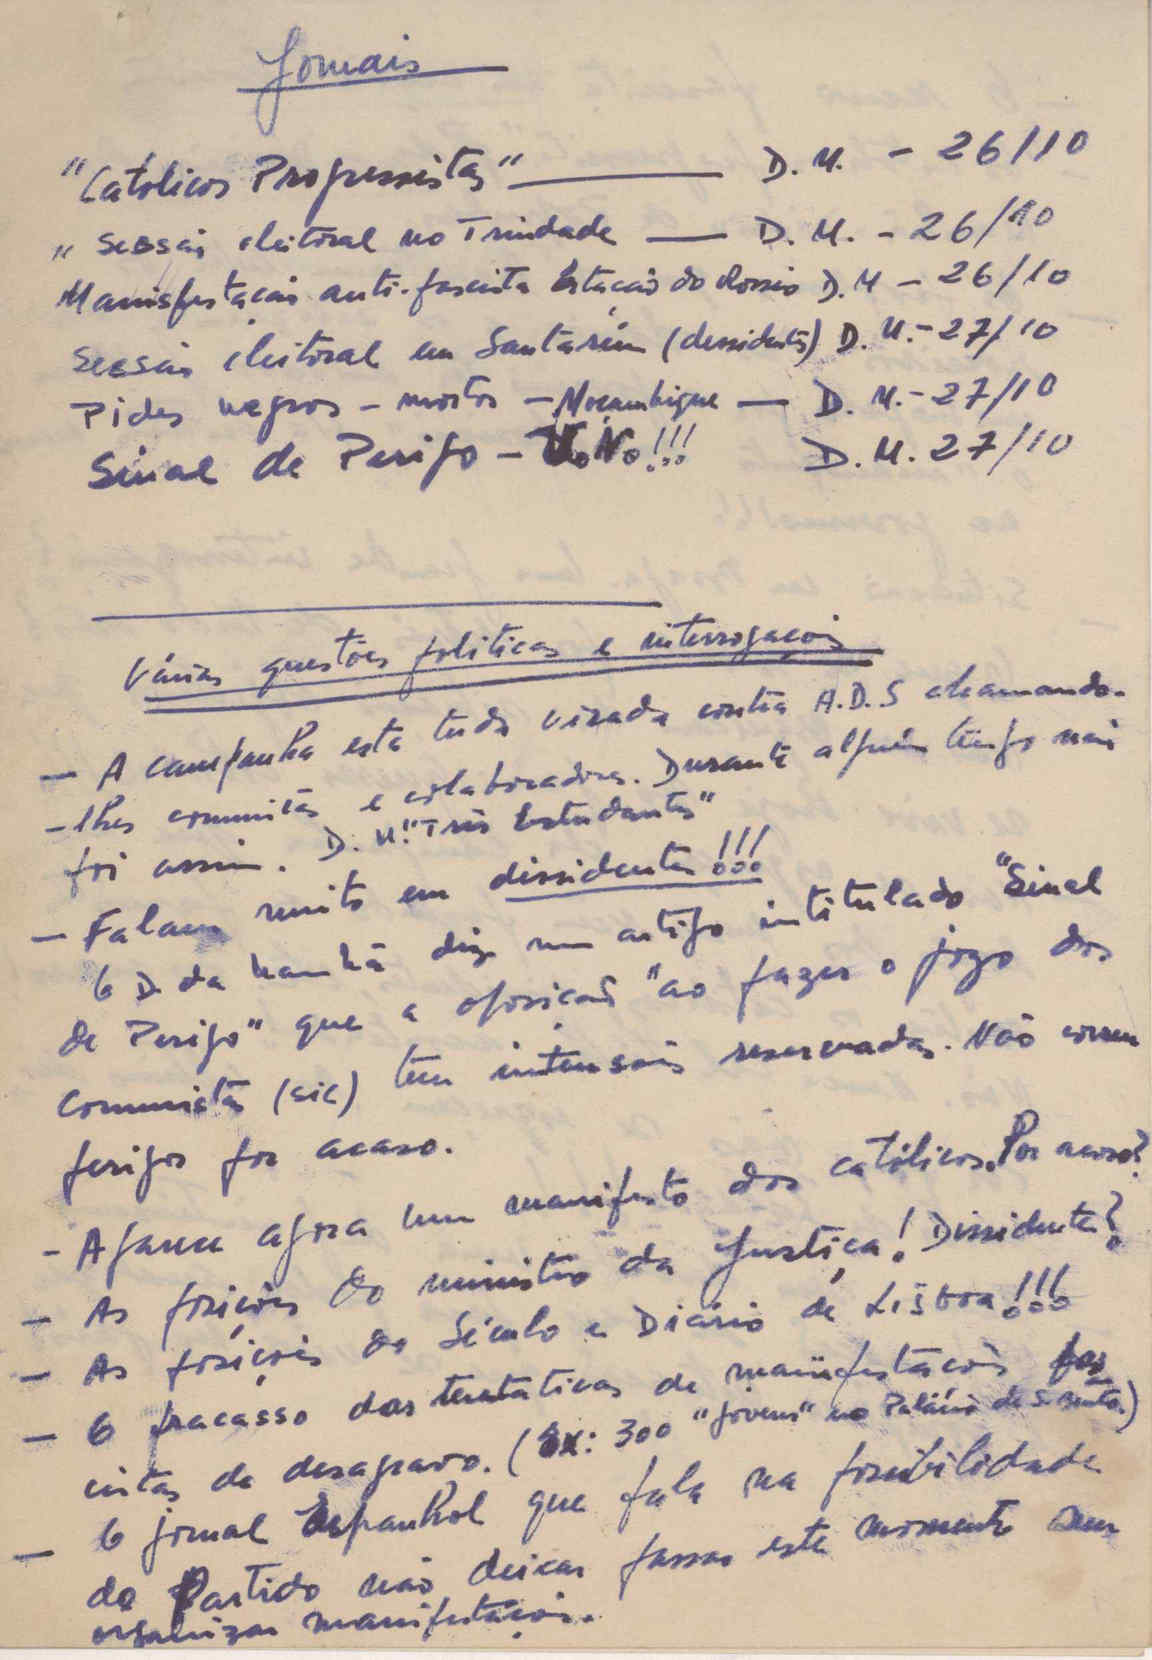 Jornais
"Católicos Progressistas" — D. M. - 26/10
" sessão eleitoral no Trindade — D. M. - 26/10
Manisfestação anti-fascista Estação do Rossio D. M - 26/10
sessão eleitoral em Santarém (dissidentes) D. M. - 27/10
Pides negros - mortos - Moçambique — D. M. - 27/10
Sinal de Perigo - V. N. !!! D. M. 27/10
Várias questões politicas e interrogações
— A campanha está tudo virada contra A.D.S chamando-
-lhes comunistas e colaboradores. Durante algum tempo não
foi assim. D. M. "Três Estudantes"
— Falam muito em dissidentes!!!
O D. da Manhã diz num artigo intitulado "Sinal
de Perigo" que a oposição "ao fazer o jogo dos
comunistas (sic) tem intensões reservadas. Não correm
perigos por acaso.
- Aparece agora um manifesto dos católicos. Por acaso?
— As posições do ministro da Justiça! Dissidente?
— As posições do Século e Diário de Lisboa!!!
— O fracasso das tentativas de manifestações fas
cistas de desagravo. (Ex: 300 "jovens" no Palácio de S. Bento.)
— O jornal Espanhol que fala na possibilidade
do Partido não deixar passar este momento sem
organizar manifestações.